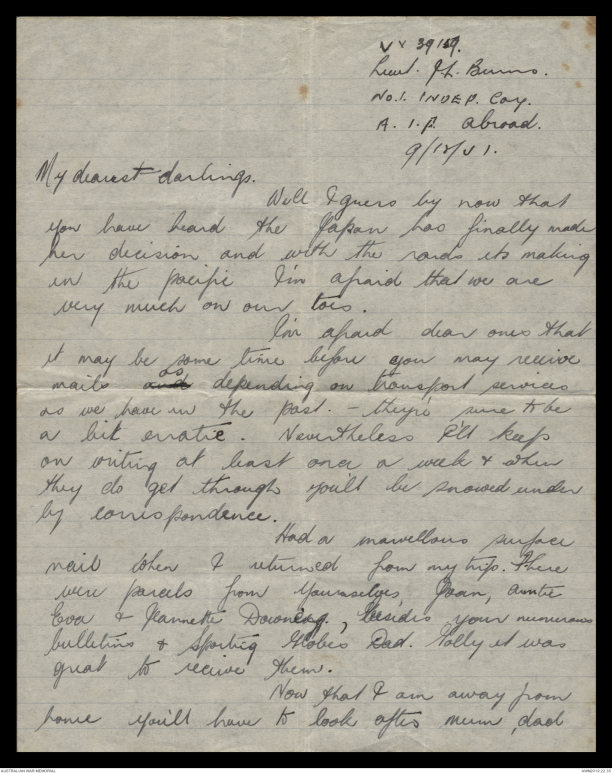 VX 39159.
Lieut. J.L. Burns.
No.1. INDEP. Coy.
A.I.F. Abroad.
9/12/41.
My dearest darlings.
Well I guess by now that
you have heard the Japan has finally made
her decision and with the raids its making
in the Pacific I'm afraid that we are
very much on our toes.
I'm afraid dear ones that
it may be some time before you may receive
mails and as depending on transport services
as we have in the past. - they're sure to be
a bit erratic. Nevertheless I'll keep
on writing at least once a week & when
they do get through you'll be snowed under
by correspondence.
Had a marvellous surface
mail when I returned from my trip. There
were parcels from yourselves, Joan, auntie
Eva & Jeannette Downing, besides your numerous
bulletins & Sporting Globes Dad. Golly it was
great to receive them.
Now that I am away from
home you'll have to look after mum, dad
AUSTRALIAN WAR MEMORIAL